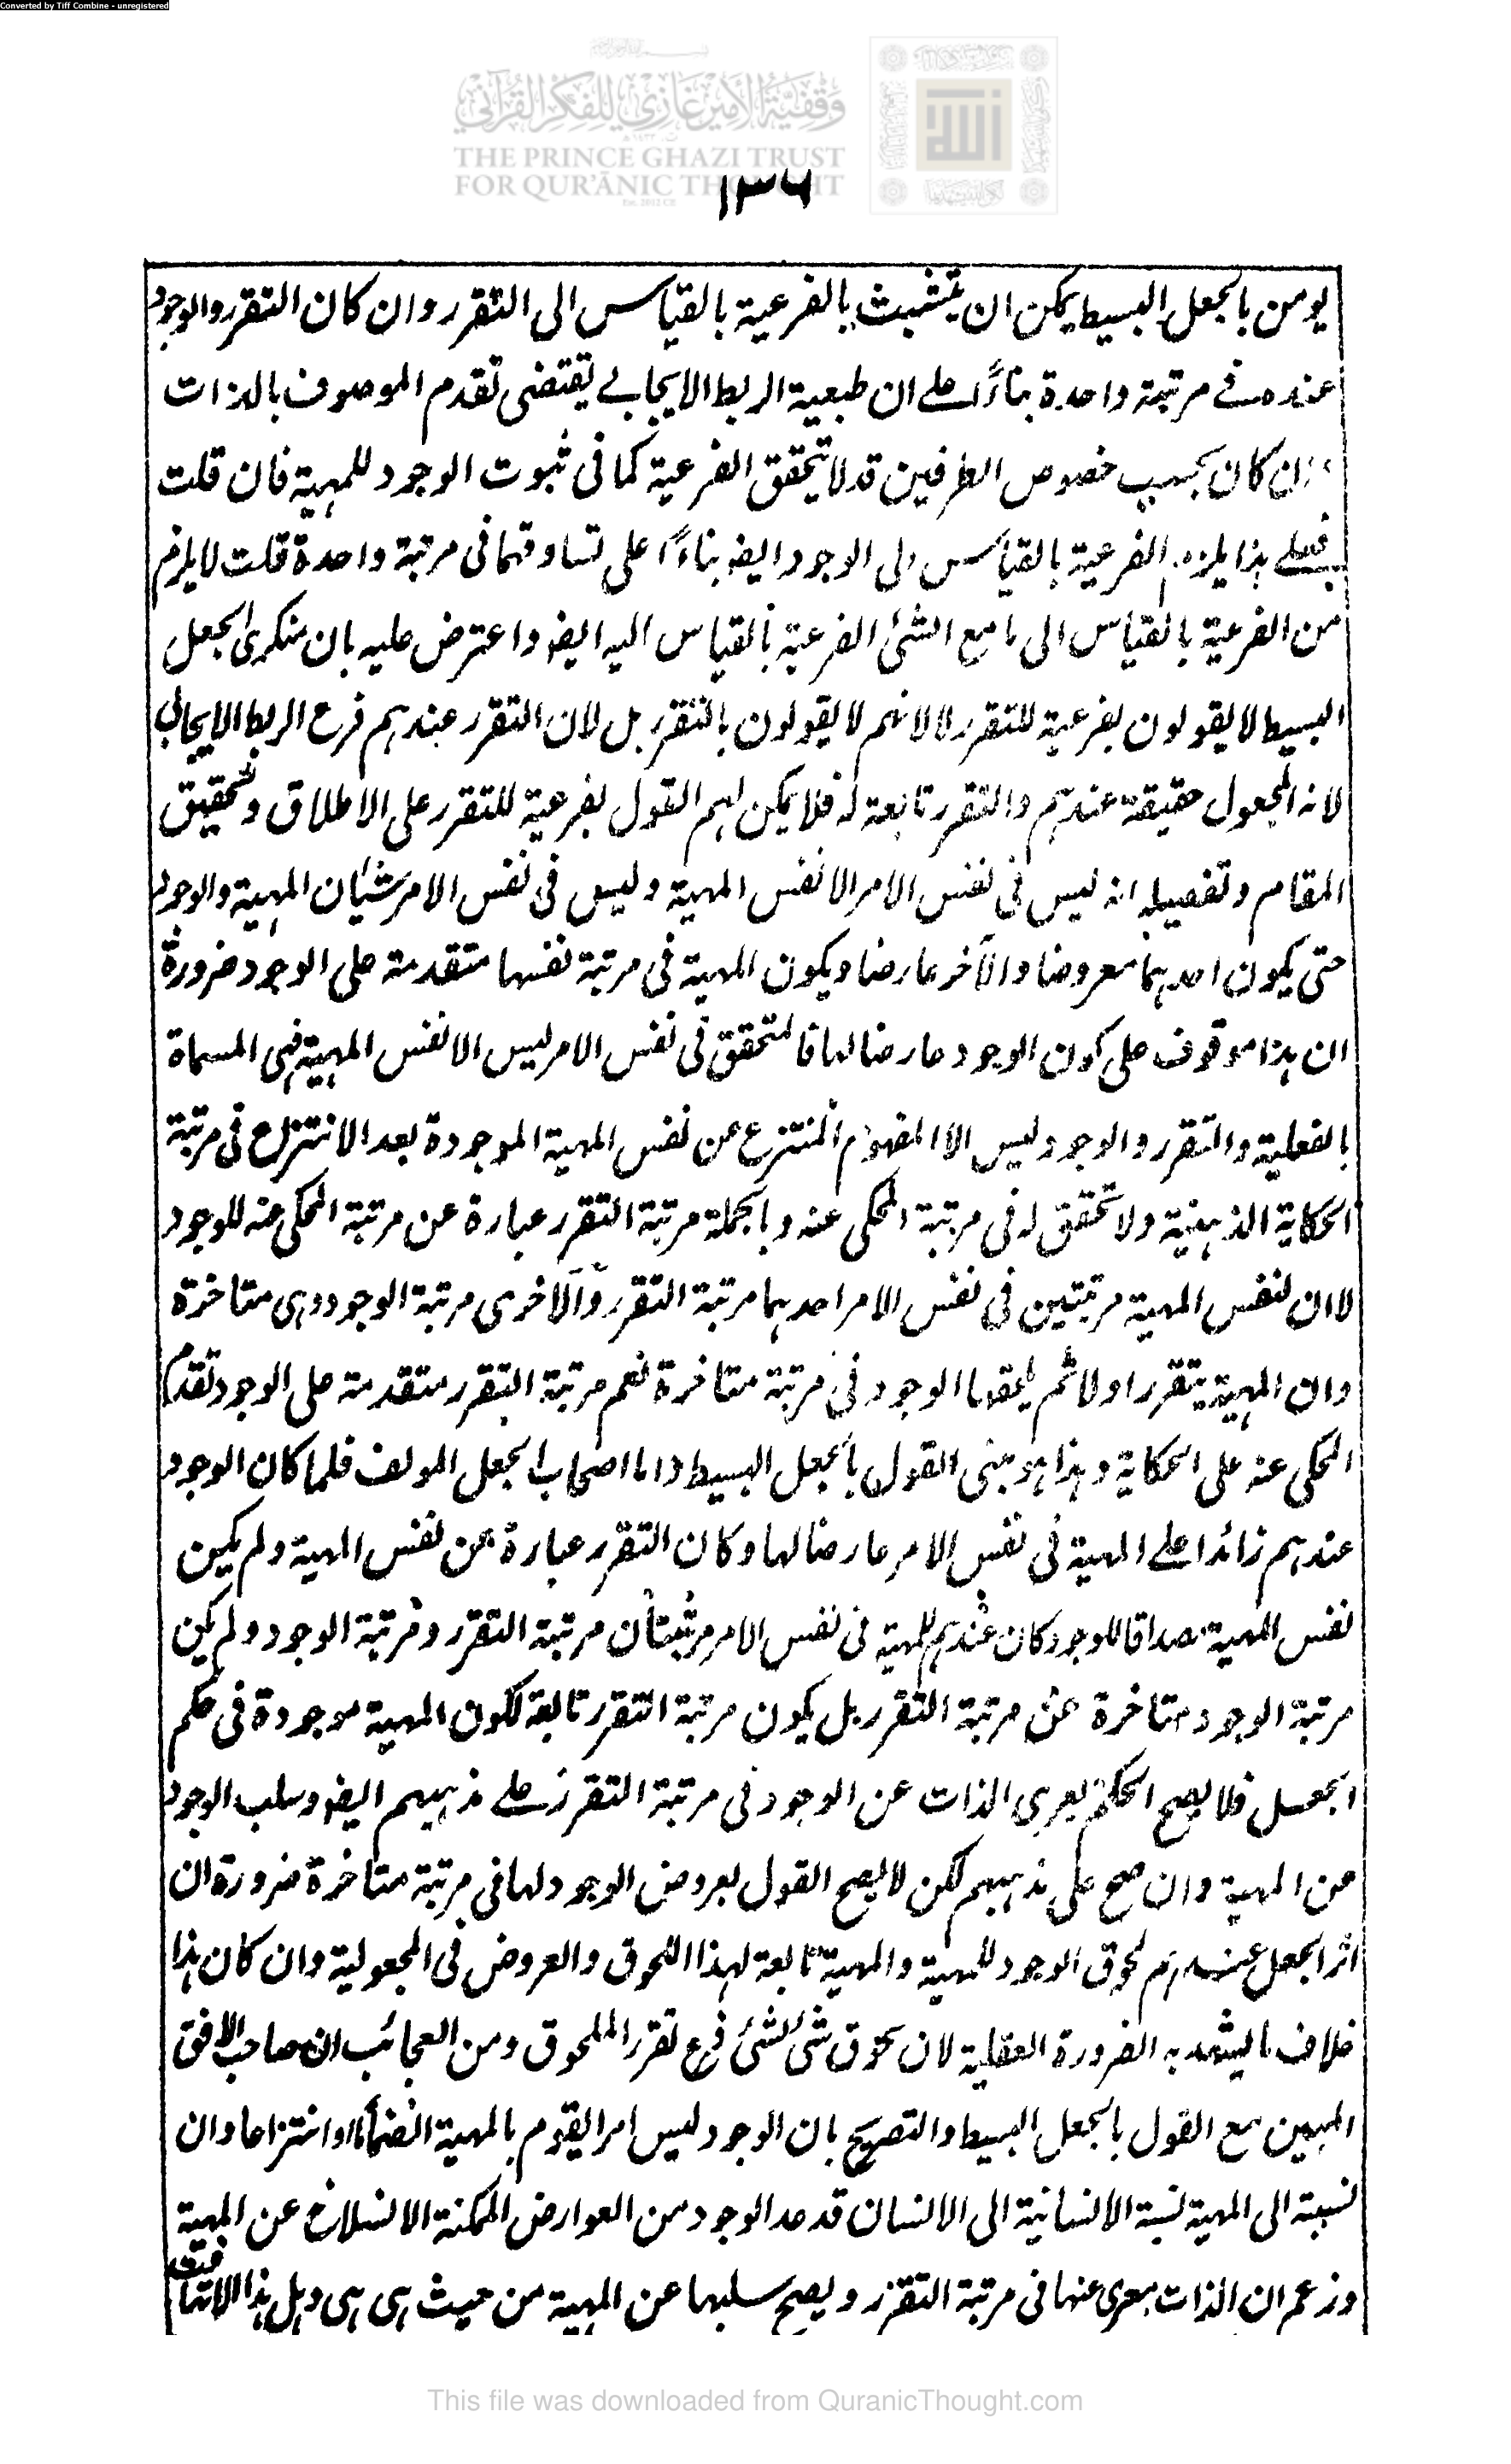 Converted by Tiff Combine - unregistered
وقفية الأمير غازي للفكر القرآني
THE PRINCE GHAZI TRUST
FOR QUR'ĀNIC THOUGHT
١٣٦
يومن بالجعل البسيط يمكن ان يتشبث بالفرعية بالقياس الى التقرر وان كان التقرر والوجود
عنده فى مرتبة واحدة بناءً على ان طبعية الربط الايجابى يقتضى تقدم الموصوف بالذات
وان كان بحسب خصوص الطرفين قد لا يتحقق الفرعية كما فى ثبوت الوجود للمهية فان قلت
فعلى هذا يلزم الفرعية بالقياس الى الوجود ايضا بناءً على تساوقهما فى مرتبة واحدة قلت لا يلزم
من الفرعية بالقياس الى ما مع الشئ الفرعية بالقياس اليه ايضا واعترض عليه بان منكرى الجعل
البسيط لا يقولون بفرعية للتقرر لا لانهم لا يقولون بالتقرر بل لان التقرر عندهم فرع الربط الايجابى
لانه المجعول حقيقة عندهم والتقرر تابعة له فلا يمكن لهم القول بفرعية للتقرر على الاطلاق وتحقيق
المقام وتفصيله انه ليس فى نفس الامر الا نفس المهية وليس فى نفس الامر شيئان المهية والوجود
حتى يكون احدهما معروضا والآخر عارضا ويكون المهية فى مرتبة نفسها متقدمة على الوجود ضرورة
ان هذا موقوف على كون الوجود عارضا لها فالمتحقق فى نفس الامر ليس الا نفس المهية فهى المسماة
بالفعلية والتقرر والوجود ليس الا المفهوم المنتزع عن نفس المهية الموجودة بعد الانتزاع فى مرتبة
الحكاية الذهنية ولا تحقق له فى مرتبة المحكى عنه وبالجملة مرتبة التقرر عبارة عن مرتبة المحكى عنه للوجود
لا ان لنفس المهية مرتبتين فى نفس الامر احدهما مرتبة التقرر والاخرى مرتبة الوجود وهى متاخرة
وان المهية يتقرر اولا ثم يلحقها الوجود فى مرتبة متاخرة نعم مرتبة التقرر متقدمة على الوجود تقدم
المحكى عنه على الحكاية وهذا هو مبنى القول بالجعل البسيط واما اصحاب الجعل المولف فلما كان الوجود
عندهم زائدا على المهية فى نفس الامر عارضا لها وكان التقرر عبارة عن نفس المهية ولم يكن
نفس المهية مصداقا للوجود كان عندهم للمهية فى نفس الامر مرتبتان مرتبة التقرر ومرتبة الوجود ولم يكن
مرتبة الوجود متاخرة عن مرتبة التقرر بل يكون مرتبة التقرر تابعة لكون المهية موجودة فى حكم
الجعل فلا يصح الحكم بعرى الذات عن الوجود فى مرتبة التقرر على مذهبهم ايضا وسلب الوجود
من المهية وان صح على مذهبهم لكن لا يصح القول بعروض الوجود لها فى مرتبة متاخرة ضرورة ان
اثر الجعل عندهم لحوق الوجود للمهية والمهية تابعة لهذا اللحوق والعروض فى المجعولية وان كان هذا
خلاف ما يشهد به الضرورة العقلية لان لحوق شئ لشئ فرع تقرر الملحوق ومن العجائب ان صاحب الافق
المبين مع القول بالجعل البسيط والتصريح بان الوجود ليس امرا يقوم بالمهية انضماما او انتزاعا وان
نسبته الى المهية نسبة الانسانية الى الانسان قد عد الوجود من العوارض الممكنة الانسلاخ عن المهية
وزعم ان الذات معرى عنها فى مرتبة التقرر ويصح سلبها عن المهية من حيث هى هى وهل هذا الا تهافت
This file was downloaded from QuranicThought.com